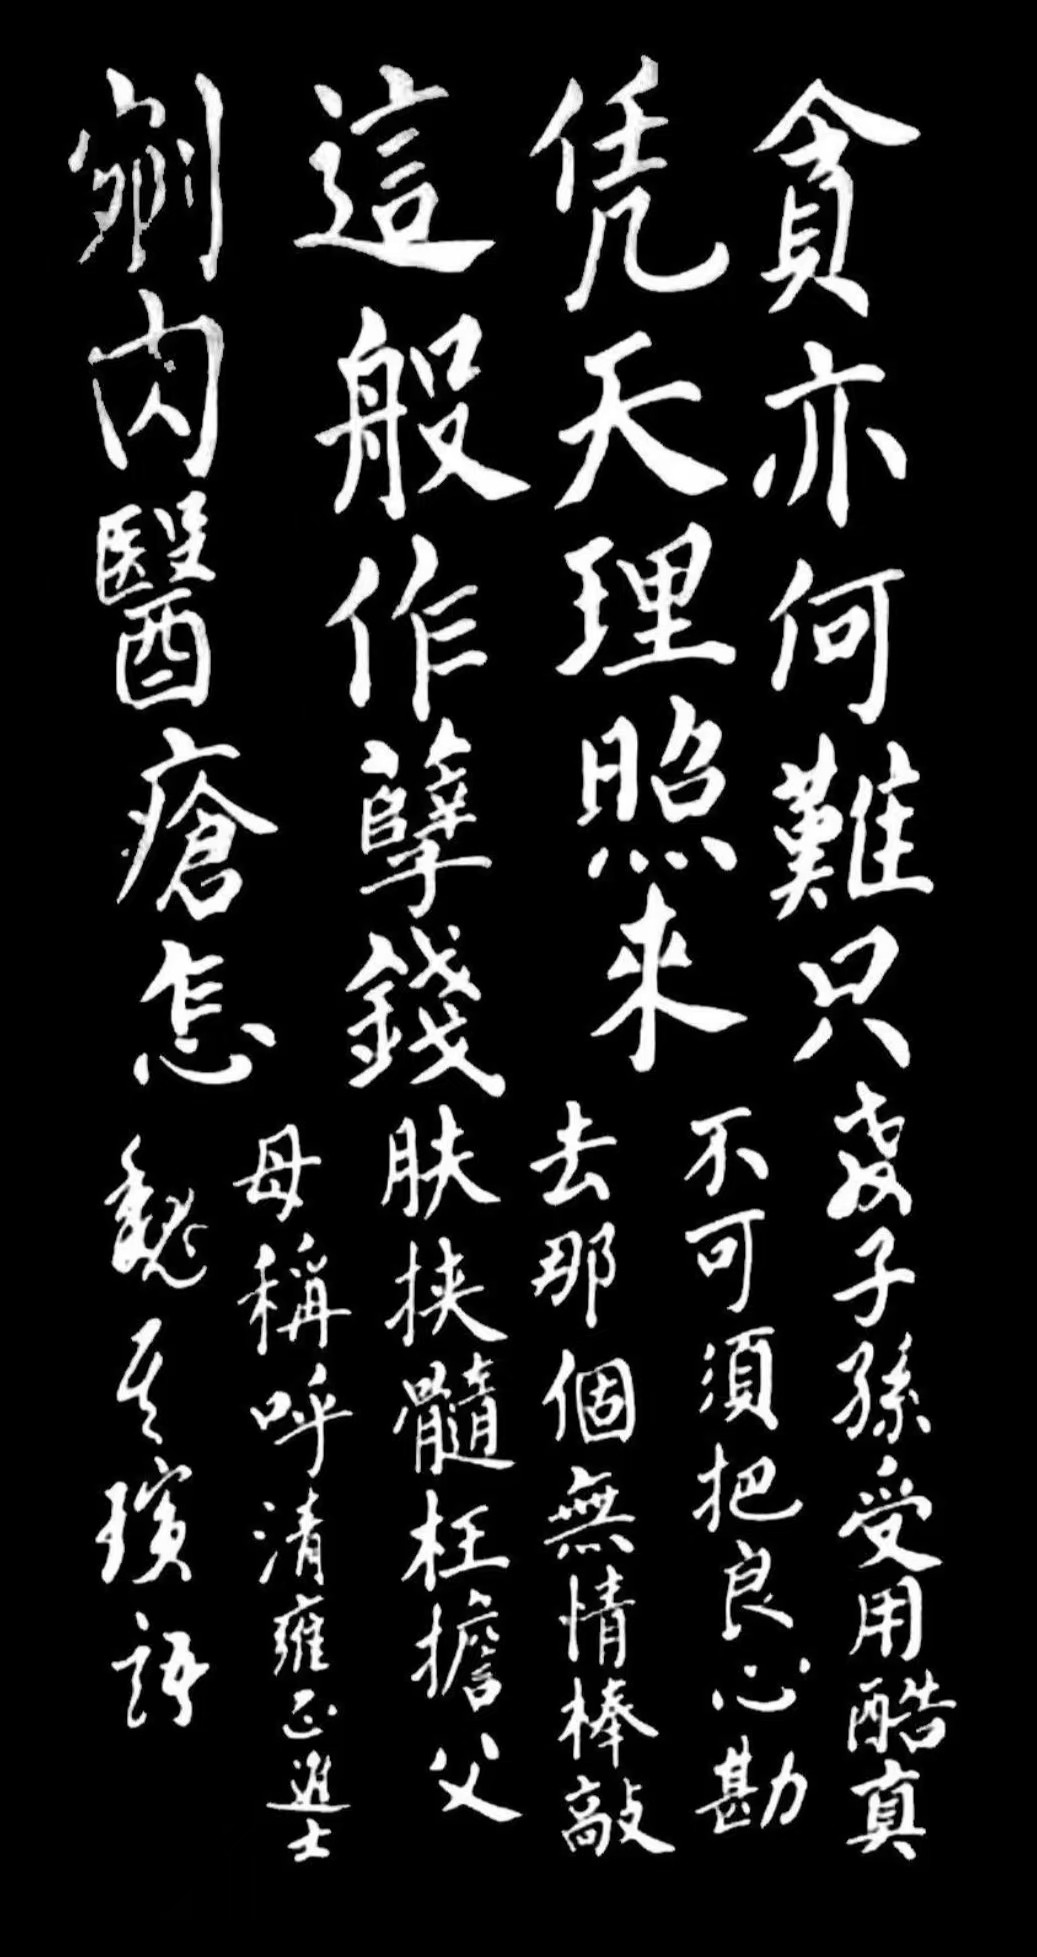 貪亦何難只
凭天理照來
這般作孽錢
剜肉醫瘡怎
教子孫受用酷真
不可須把良心勘
去那個無情棒敲
肤挟髓枉擔父
母稱呼清雍正進士
魏其瑸語